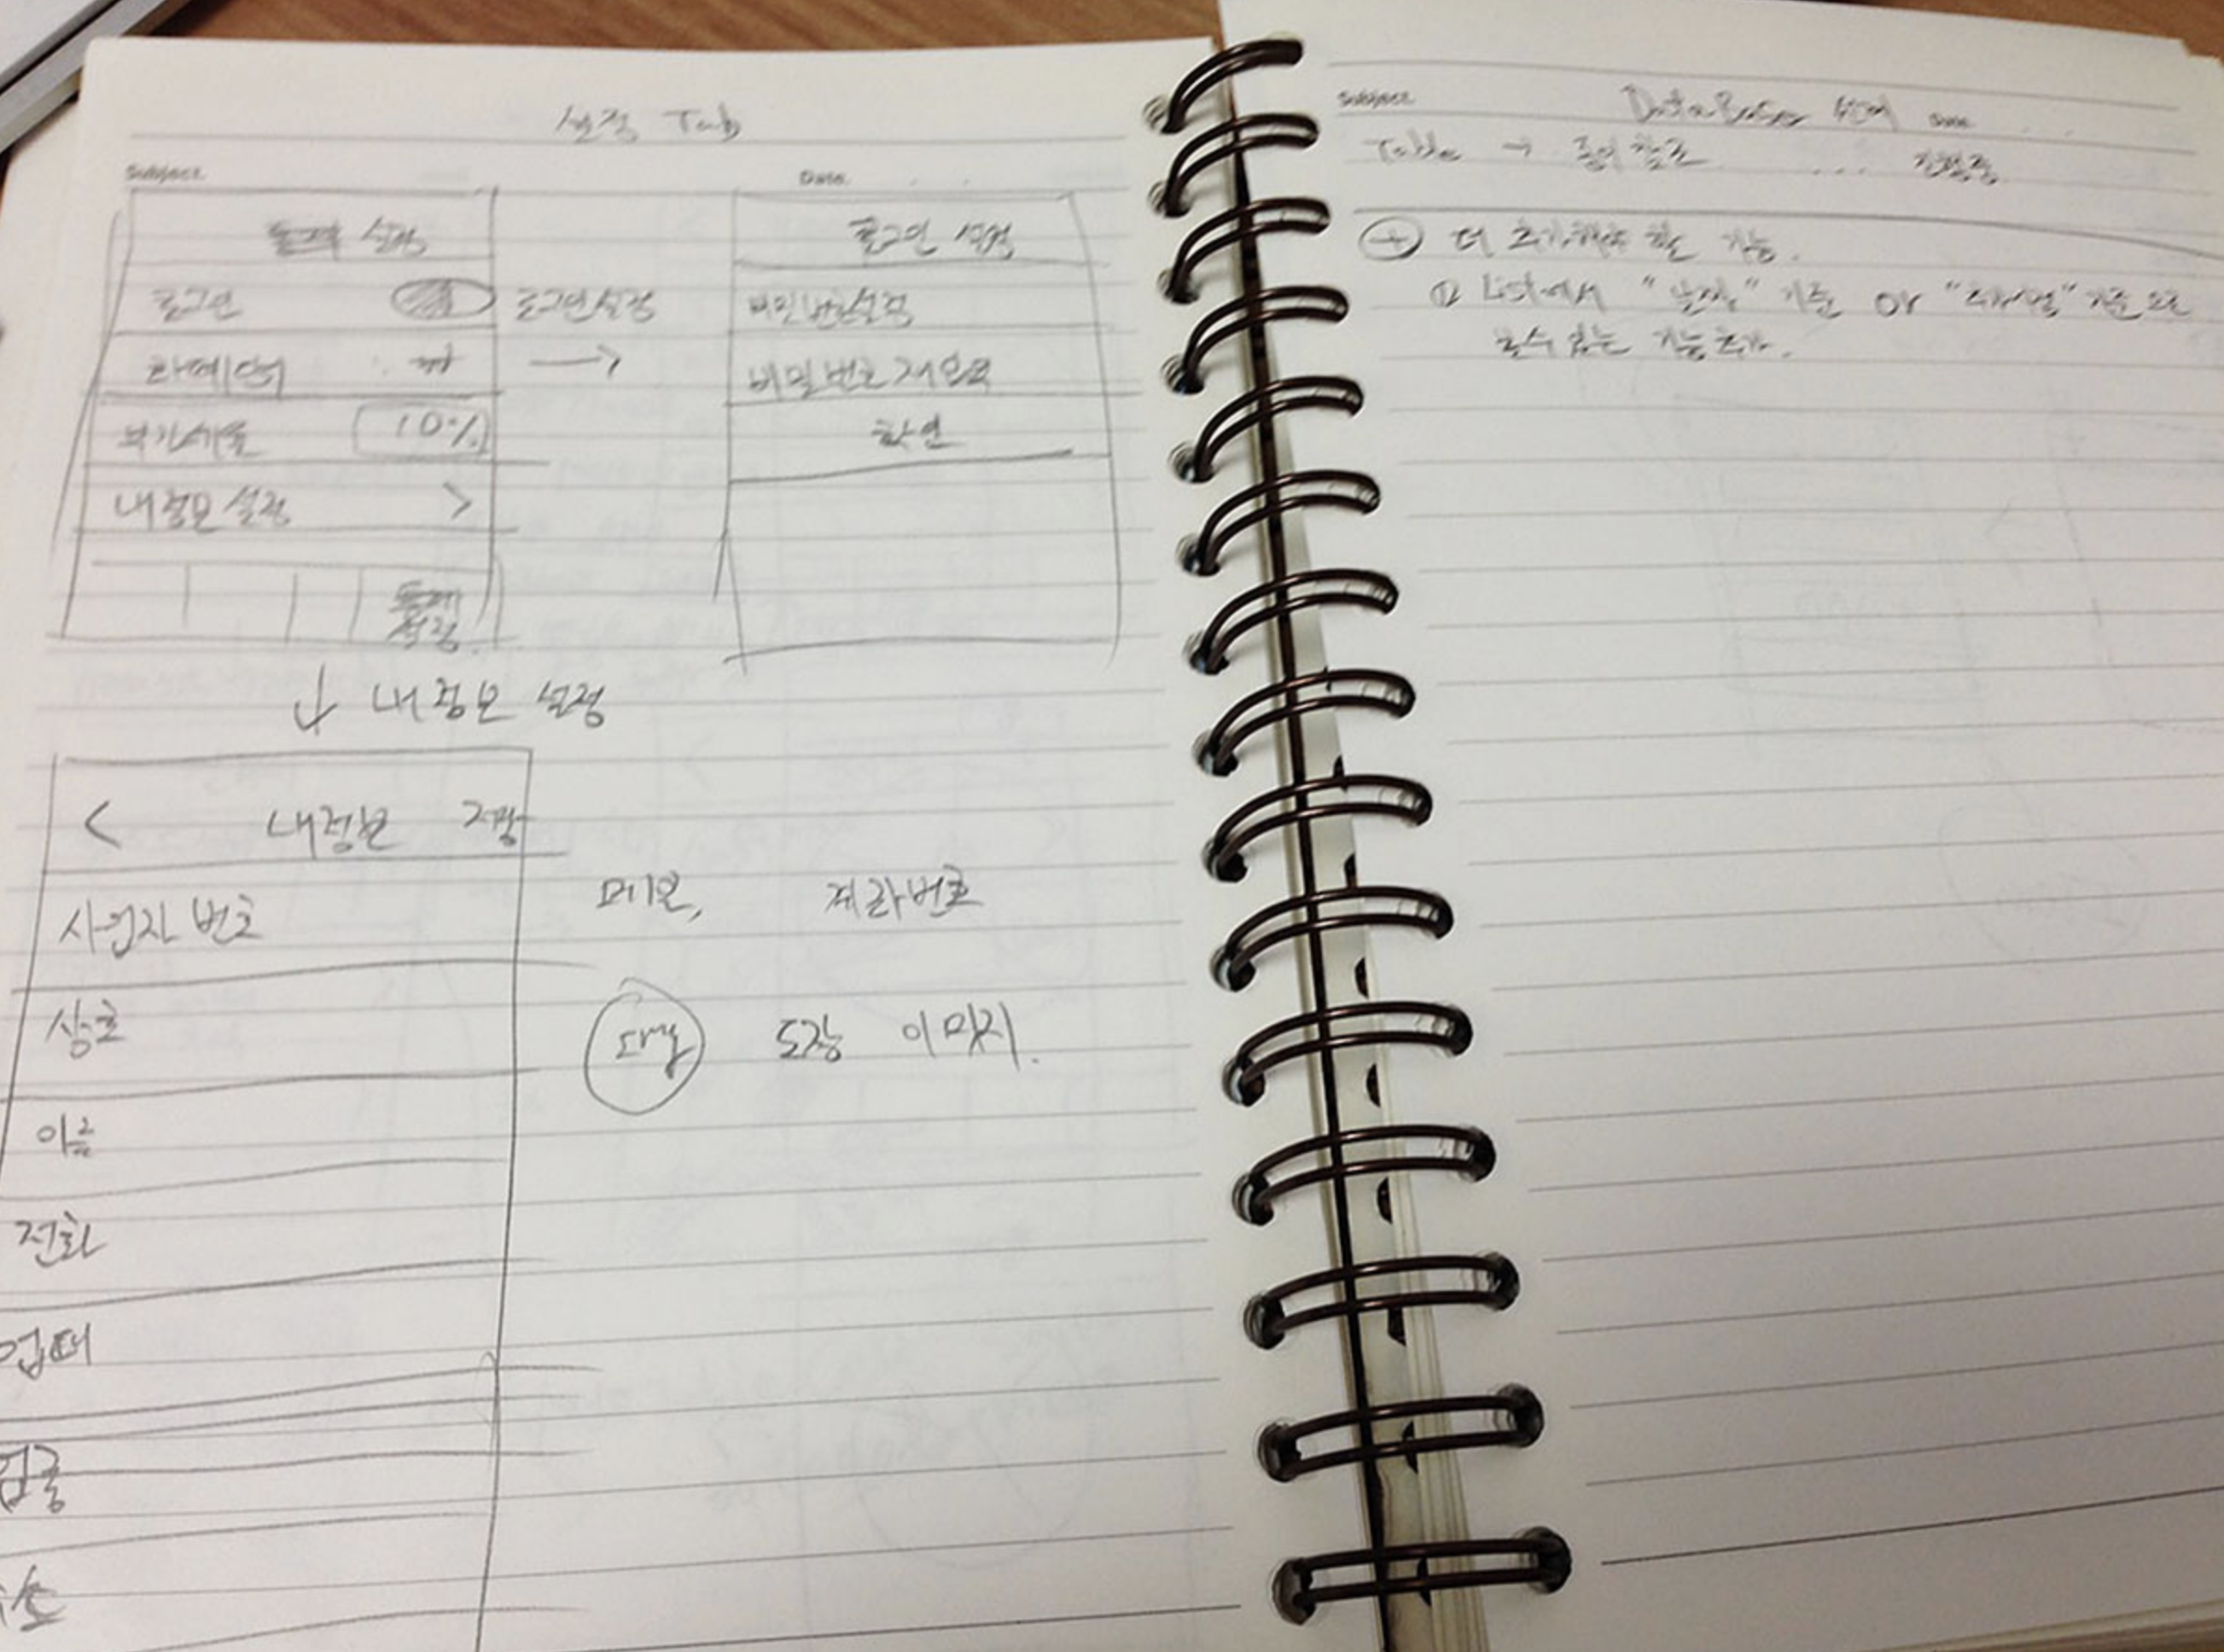 설정 Tab
Subject.
Date. . .
설정
로그인
로그인 설정
화폐단위 ₩
부가세율 10%
내정보 설정 >
설정
로그인 설정
비밀번호설정
비밀번호 재입력
확인
↓ 내정보 설정
< 내정보 저장
사업자 번호
상호
이름
전화
업태
업종
메모, 계좌번호
도장 이미지.
Subject.
DataBase 설계
Date. . .
Table → 종이참조 ... 진행중
+ 더 추가해야 할 기능.
① List에서 "날짜" 기준 or " " 기준으로
볼수 있는 기능 추가.